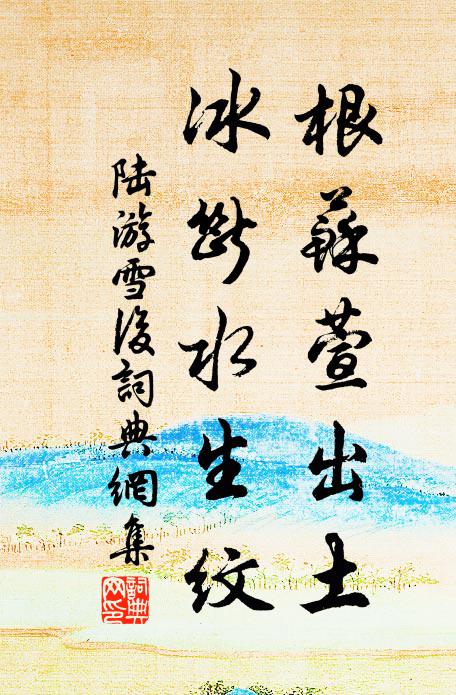 根蘇萱出土
冰斷水生紋
陸游雪後詞典網集